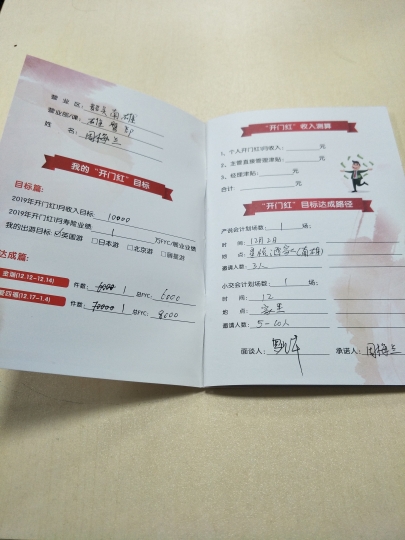 营 业 区：韶关南雄
营业部/课：雄鹰部
姓 名：周梅兰
我的“开门红”目标
目标篇：
2019年开门红1月收入目标 10000
2019年开门红1月寿险业绩 1 万FYC/爵业业绩
我的出游目标：☑英国游 □日本游 □北京游 □
达成篇：
(12.12-12.14) 件数： 1 总FYC： 6000
(12.17-1.4) 件数： 1 总FYC： 8000
“开门红”收入测算
1、个人开门红1月收入： 元
2、主管直接管理津贴： 元
3、经理津贴： 元
合计： 元
“开门红”目标达成路径
产说会计划场数： 1 场；
时 间： 12月2日
地 点：
邀请人数： 3人
小交会计划场数： 1 场；
时 间： 12
地 点： 家里
邀请人数： 5-10人
面谈人： 承诺人：周梅兰